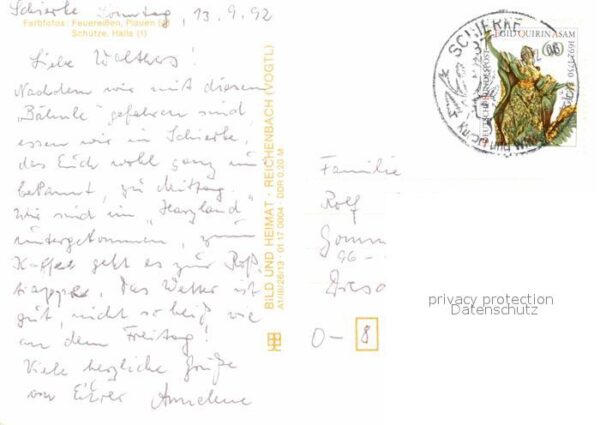 Schierke Sonntag, 13.9.92
Farbfotos: Feuereißen, Plauen
Schütze, Halle (1)
Liebe Walthers!
Nachdem wir mit diesem
"Bähnle" gefahren sind,
essen wir in Schierke,
das Euch wohl ganz
bekannt, zu Mittag.
Wir sind im "Harzland"
untergekommen, zum
Kaffee geht es zur Roß-
trappe. Das Wetter ist
gut, nicht so heiß wie
an dem Freitag!
Viele herzliche Grüße
von Eurer
BILD UND HEIMAT · REICHENBACH (VOGTL)
A1/III/26/13 01 17 0004 DDR 0,20 M
SCHIERKE
Kur- und
EGID QUIRIN ASAM
1692-1750
DEUTSCHE BUNDESPOST
60
Familie
Rolf
O- 8
privacy protection
Datenschutz